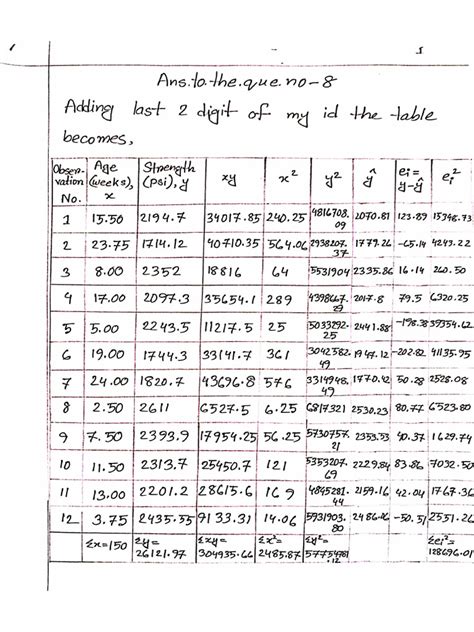 Ans. to. the. que. no-8
Adding last 2 digit of my id the table
becomes,
Observation No. Age (weeks), x Strength (psi), y xy x² y² ŷ ei = y-ŷ ei²
1 15.50 2194.7 34017.85 240.25 4816708.09 2070.81 123.89 15348.73
2 23.75 1714.12 40710.35 564.06 2938207.37 1779.26 -65.14 4243.22
3 8.00 2352 18816 64 5531904 2335.86 16.14 260.50
4 17.00 2097.3 35654.1 289 4398667.29 2017.8 79.5 6320.25
5 5.00 2243.5 11217.5 25 5033292.25 2441.88 -198.38 39354.62
6 19.00 1744.3 33141.7 361 3042582.49 1947.12 -202.82 41135.95
7 24.00 1820.7 43696.8 576 3314948.49 1770.42 50.28 2528.08
8 2.50 2611 6527.5 6.25 6817321 2530.23 80.77 6523.80
9 7.50 2393.9 17954.25 56.25 5730757.21 2353.53 40.37 1629.74
10 11.50 2313.7 25450.7 121 5353207.69 2229.84 83.86 7032.50
11 13.00 2201.2 28615.6 169 4845281.44 2159.16 42.04 1767.36
12 3.75 2435.55 9133.31 14.06 5931903.80 2486.06 -50.51 2551.26
Σx=150 Σy= 26121.97 Σxy= 304935.66 Σx²= 2485.87 Σy²= 57754781.12 Σei²= 128696.01